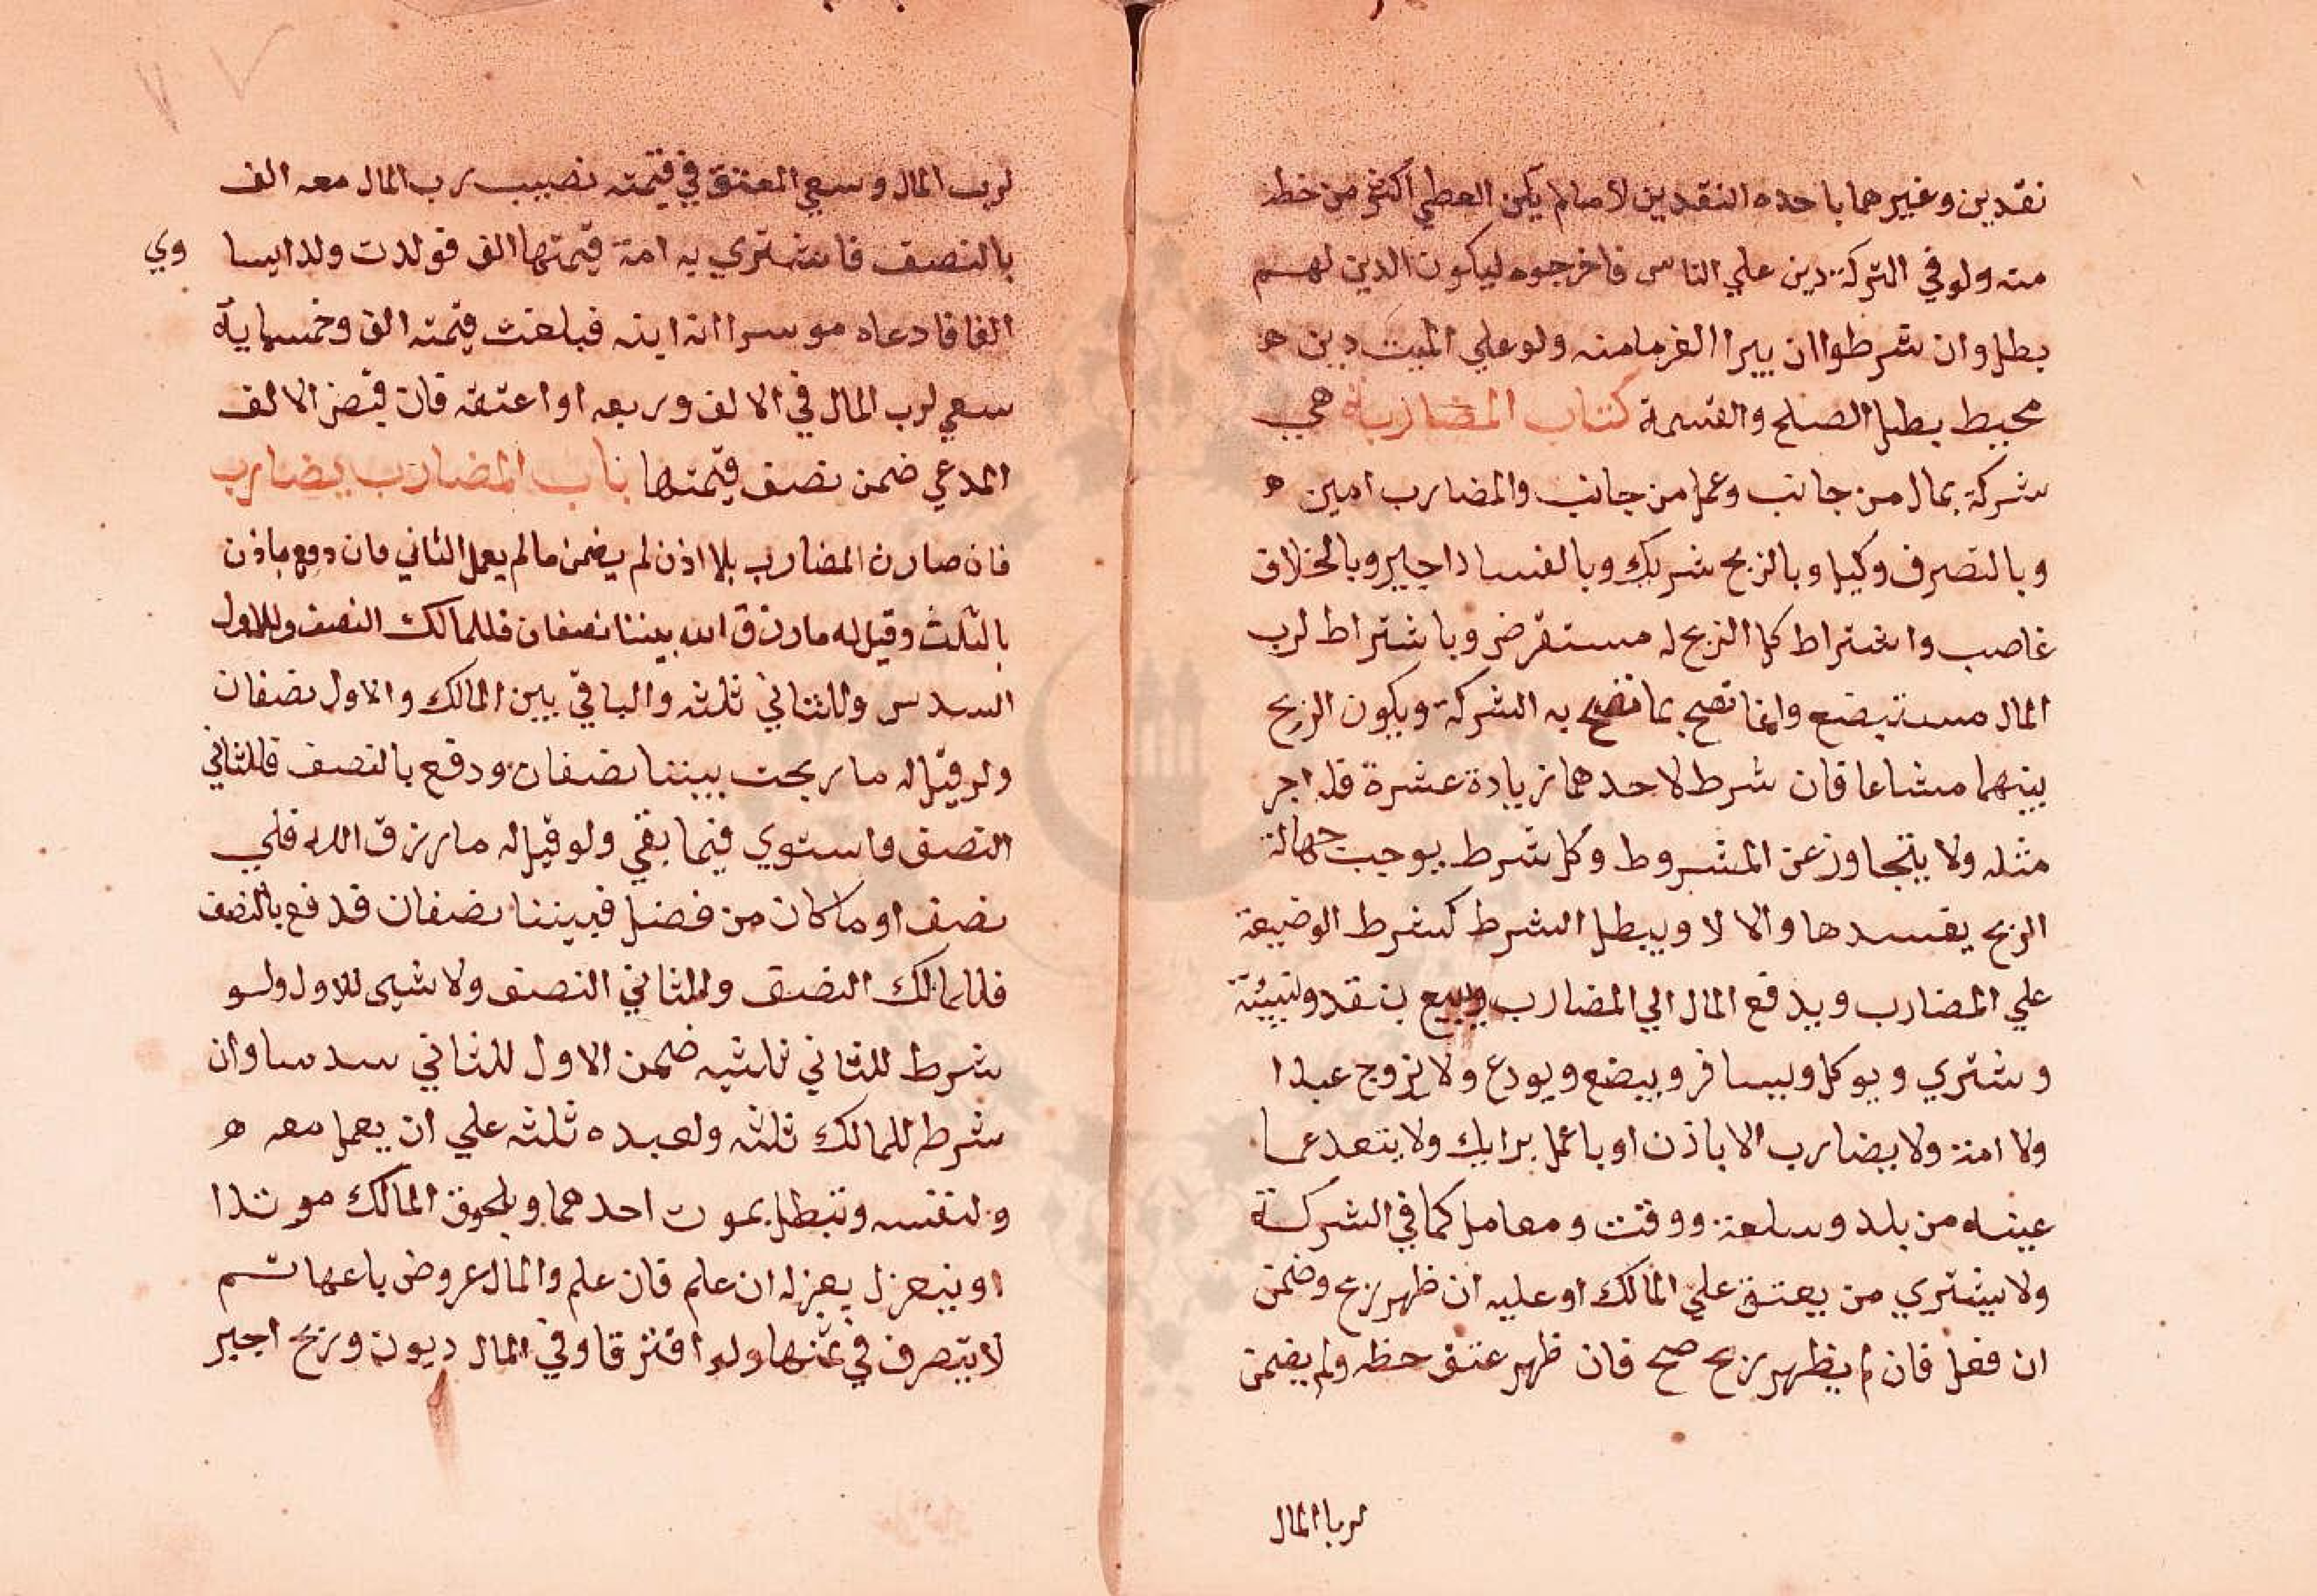 نقدين وغيرهما باحده النقدين لا مالم يكن المعطي اكثر من خط
منه ولو في التركة دين علي الناس فاخرجوه ليكون الدين لهم
بطل وان شرطوا ان يبرا الغرما منه ولو علي الميت دين ه
محيط بطل الصلح والقسمة كتاب المضاربة هي
شركة بمال من جانب وعمل من جانب والمضارب امين ه
وبالتصرف وكيل وبالربح شريك وبالفساد اجير وبالخلاف
غاصب واشتراط كل الربح له مستقرض وباشتراط لرب
المال مستبضع وانما تصح بما تصح به الشركة ويكون الربح
بينهما مشاعا فان شرط لاحدهما زيادة عشرة فله اجر
مثله ولا يتجاوز عن المشروط وكل شرط يوجب جهالة
الربح يفسدها والا لا ويبطل الشرط كشرط الوضيعة
علي المضارب ويدفع المال الي المضارب ويبيع بنقد ونسيئة
وشتري ويوكل ويسافر ويبضع ويودع ولا يزوج عبدا
ولا امة ولا يضارب الا باذن او باعمل برايك ولا يتعد عما
عينه من بلد وسلعة ووقت ومعامل كما في الشركة
ولا يشتري من يعتق علي المالك او عليه ان ظهر ربح وضمن
ان فعل فان لم يظهر ربح صح فان ظهر عتق حظه ولم يضمن
لربا المال
لرب المال وسعي المعتق في قيمته نصيب رب المال معه الف
بالنصف فاشتري به امة قيمتها الف فولدت ولدا يسا وي
الفا فادعاه موسرا انه ابنه فبلغت قيمته الف وخمسماية
سعي لرب المال في الالف وربعه او اعتقه فان قبض الالف
المدعي ضمن نصف قيمتها باب المضارب يضارب
فان ضارب المضارب بلا اذن لم يضمن مالم يعمل الثاني فان دفع باذن
بالثلث وقيل له مارزق الله بيننا نصفان فللمالك النصف وللاول
السدس وللثاني ثلثه والباقي بين المالك والاول نصفان
ولو قيل له ما ربحت بيننا نصفان ودفع بالنصف فللثاني
النصف واستوي فيما بقي ولو قيل له ما رزق الله فلي
نصف او ما كان من فضل فبيننا نصفان فدفع بالنصف
فللمالك النصف وللثاني النصف ولا شيي للاول ولو
شرط للثاني ثلثيه ضمن الاول للثاني سدسا وان
شرط للمالك ثلثه ولعبده ثلثه علي ان يعمل معه ه
ولنفسه وتبطل بموت احدهما وبلحوق المالك مرتدا
او ينعزل بعزله ان علم فان علم والمال عروض باعها ثم
لا يتصرف في ثمنها ولو افترقا وفي المال ديون وربح اجبر